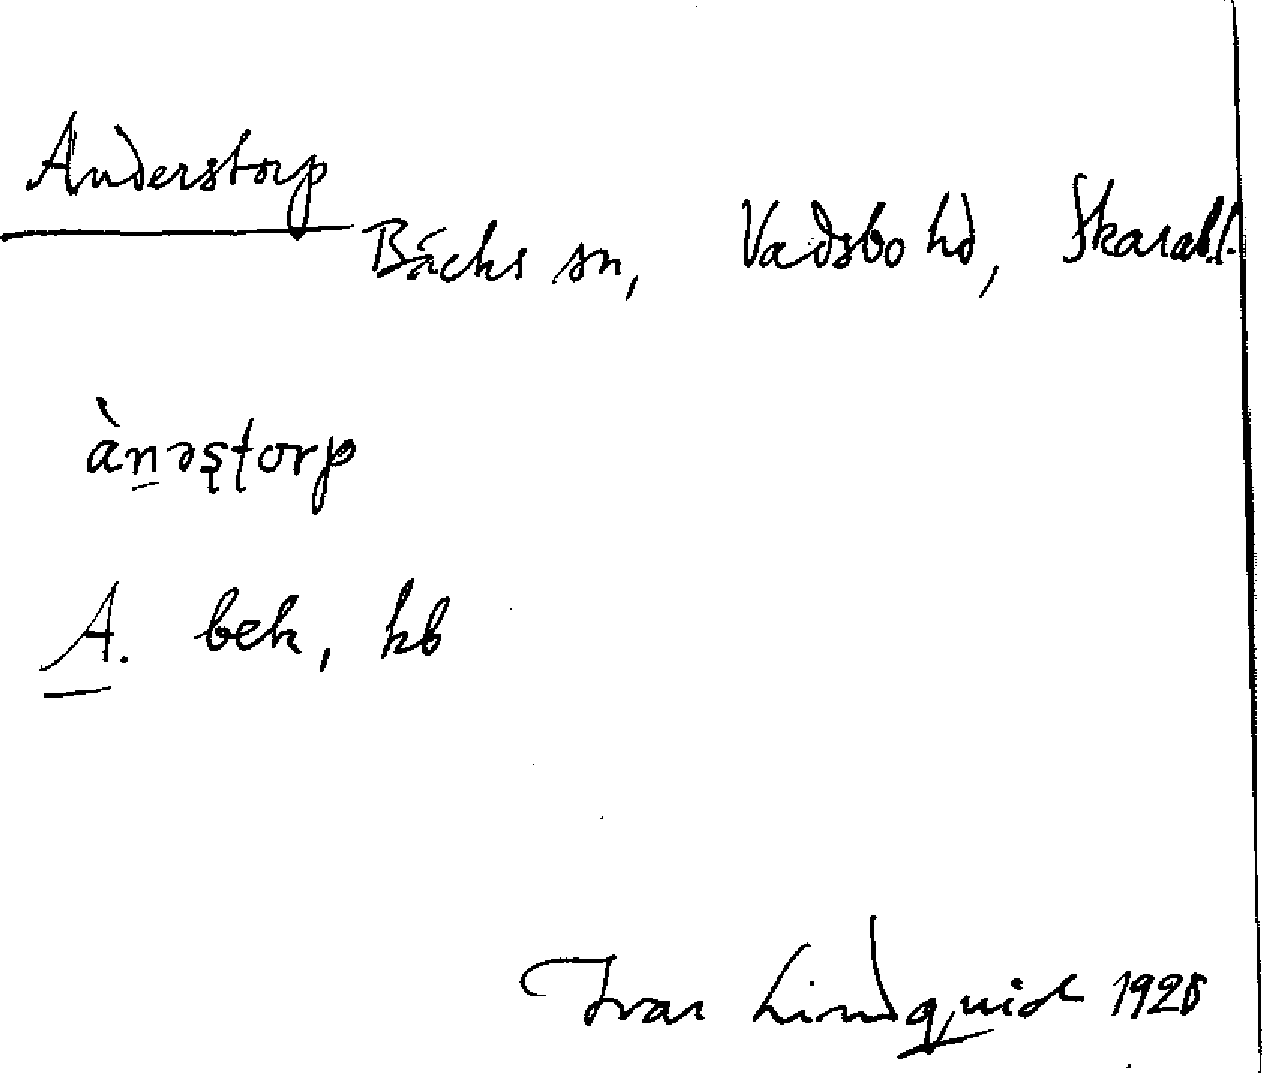 Anderstorp
Bäcks sn, Vadsbo hd, Skarab.l.
àn̠əʂʈorp
A. bek, kb
Ivar Lindquist 1928